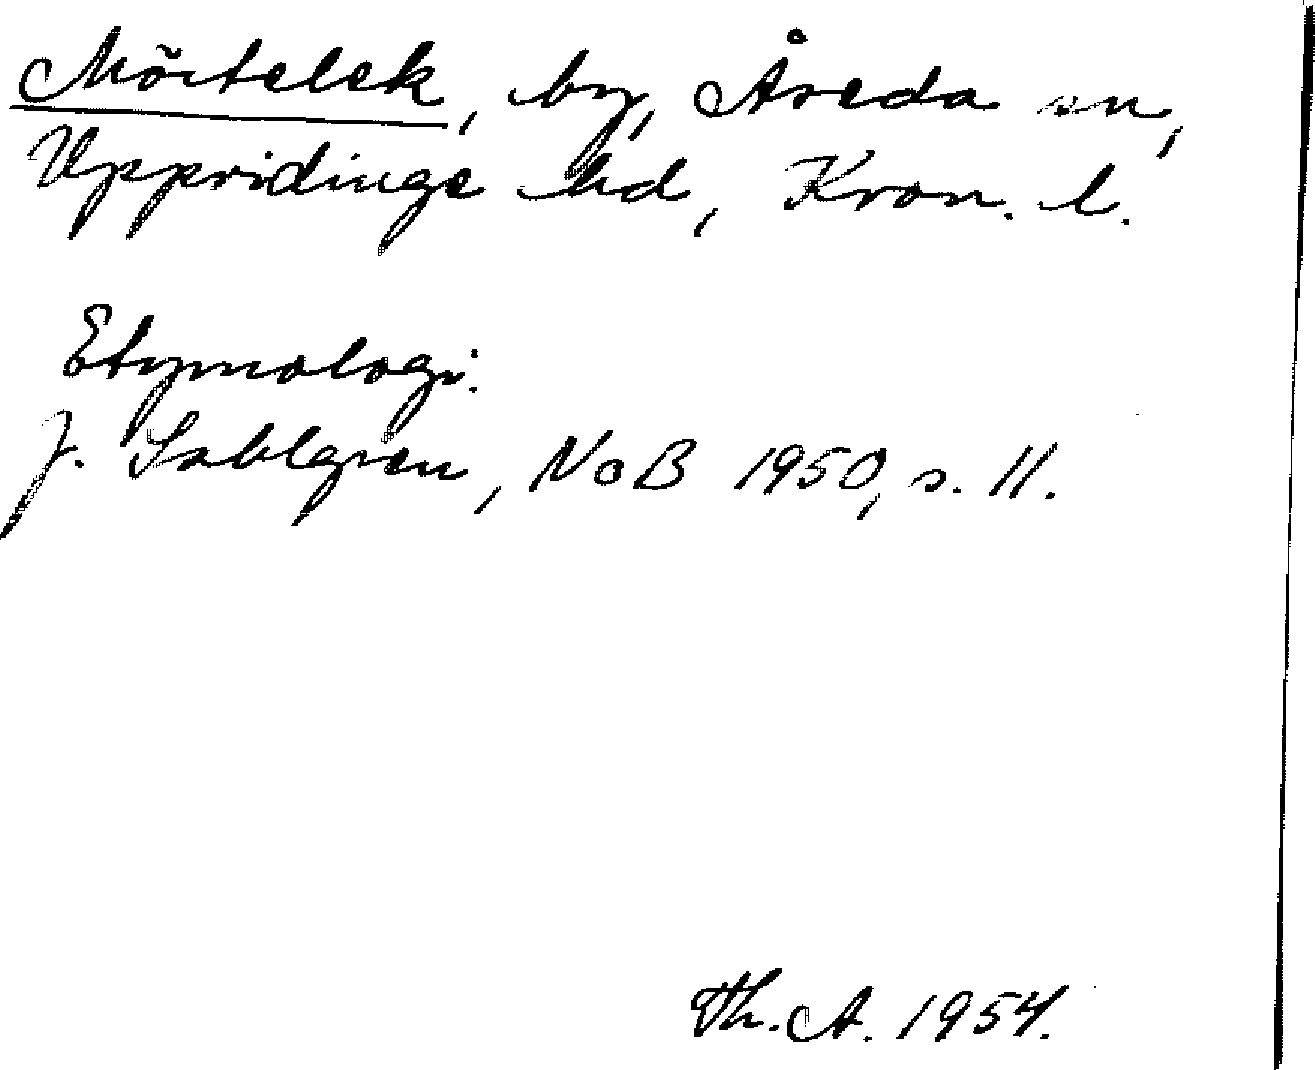 Mörtelek, by, Åseda sn,
Uppvidinge hd, Kron. l.
Etymologi.
J. Sahlgren, NoB 1950, s. 11.
Th. A. 1954.